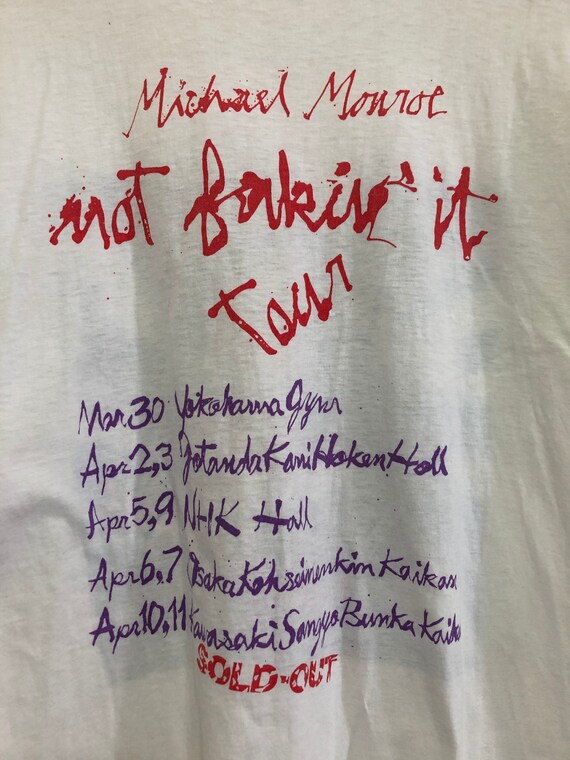 Michael Monroe
not fakin' it
Tour
Mar 30 Yokohama Gym
Apr 2,3 Gotanda Kani Hoken Hall
Apr 5,9 NHK Hall
Apr 6,7 Osaka Kohseinenkin Kaikan
Apr 10,11 Kawasaki Sangyo Bunka Kaika
SOLD-OUT